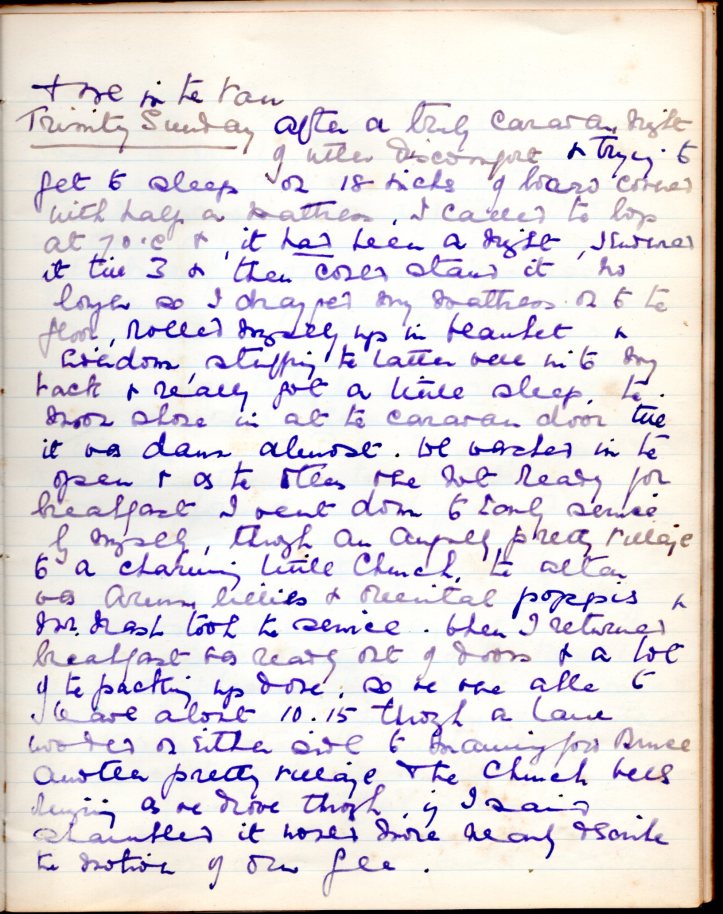 & me in te van
Trinity Sunday after a truly caravan night
of utter discomfort & trying to
get to sleep on 18 inchs of board covered
with half a mattress, I called te
at 7 o.c & , it had been a night, I endured
it till 3 & then coud stand it no
longer so I dragged my mattress on to te
floor, rolled myself up in blanket &
eiderdown, stuffing te latter well into my
back & really got a little sleep, te
moon shone in at te caravan door till
it was dawn almost. We washed in te
open & as te others were not ready for
breakfast I went down to Early service
by myself, through an awfully pretty village
to a charming little Church, te altar
was Arum lillies & oriental poppis &
Mr. Nash took te service. When I returned
breakfast was ready out of doors & a lot
of te packing up done, so we were able to
leave about 10.15 through a lane
wooded on Either side to
another pretty village & the Church bells
ringing as we drove through, if I said
shambled it would more nearly describe
te motion of our gee.